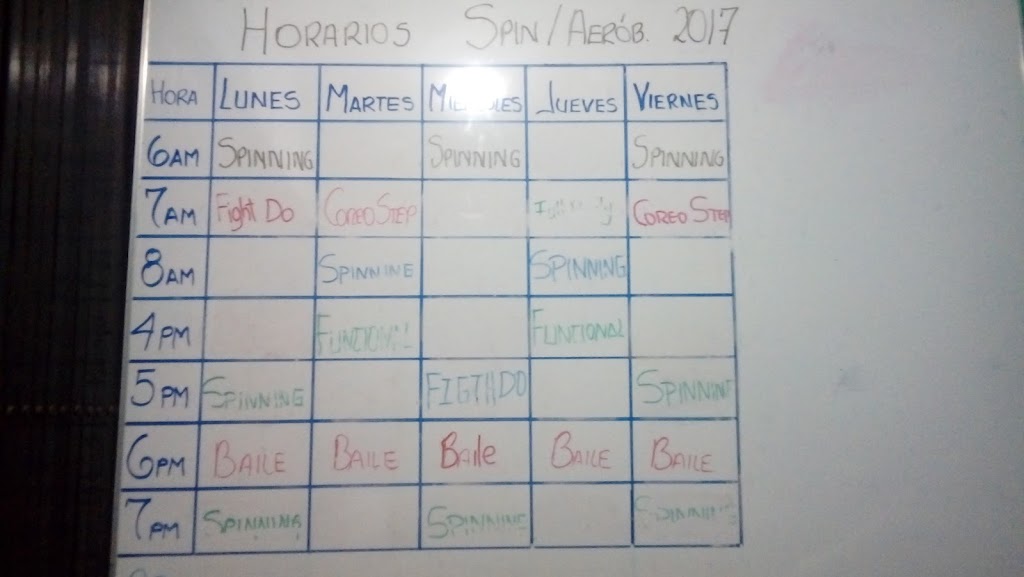 HORARIOS SPIN/AERÓB. 2017
HORA LUNES MARTES JUEVES VIERNES
6AM SPINNING SPINNING SPINNING
7AM Fight Do COREO STEP COREO STEP
8AM SPINNINE SPINNING
4PM FUNTIONAL FUNTIONAL
5PM SPINNING FIGTHDO SPINNING
6PM BAILE BAILE Baile BAILE BAILE
7PM SPINNING SPINNINE SPINNING